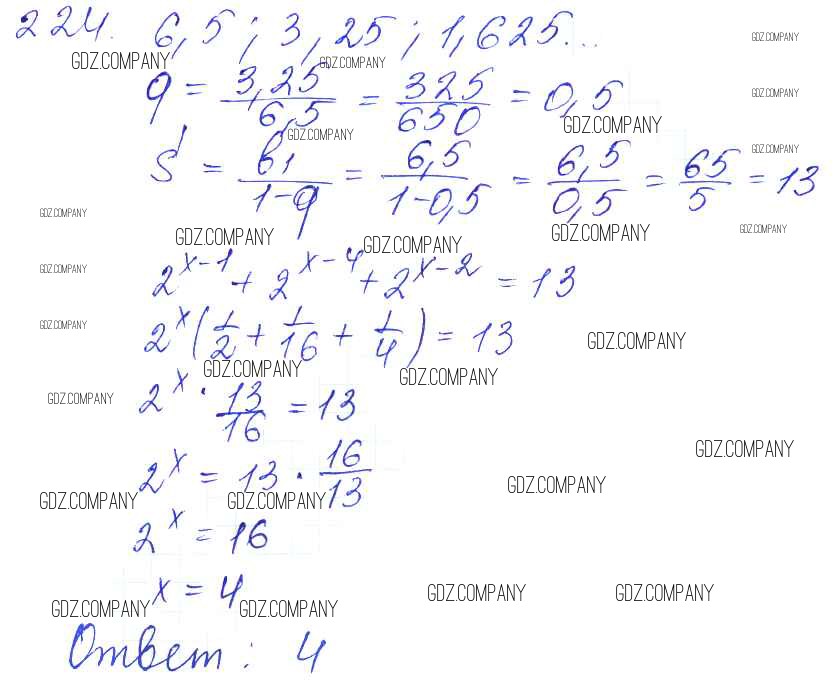 224. 6,5; 3,25; 1,625...
GDZ.COMPANY GDZ.COMPANY GDZ.COMPANY
q = 3,25/6,5 = 325/650 = 0,5
GDZ.COMPANY GDZ.COMPANY GDZ.COMPANY
S = b1/(1-q) = 6,5/(1-0,5) = 6,5/0,5 = 65/5 = 13
GDZ.COMPANY
GDZ.COMPANY GDZ.COMPANY GDZ.COMPANY GDZ.COMPANY GDZ.COMPANY
2^(x-1) + 2^(x-4) + 2^(x-2) = 13
GDZ.COMPANY
2^x (1/2 + 1/16 + 1/4) = 13
GDZ.COMPANY GDZ.COMPANY
GDZ.COMPANY GDZ.COMPANY
2^x · 13/16 = 13
GDZ.COMPANY GDZ.COMPANY
2^x = 13 · 16/13
GDZ.COMPANY GDZ.COMPANY GDZ.COMPANY
2^x = 16
x = 4
GDZ.COMPANY GDZ.COMPANY GDZ.COMPANY GDZ.COMPANY
Ответ: 4